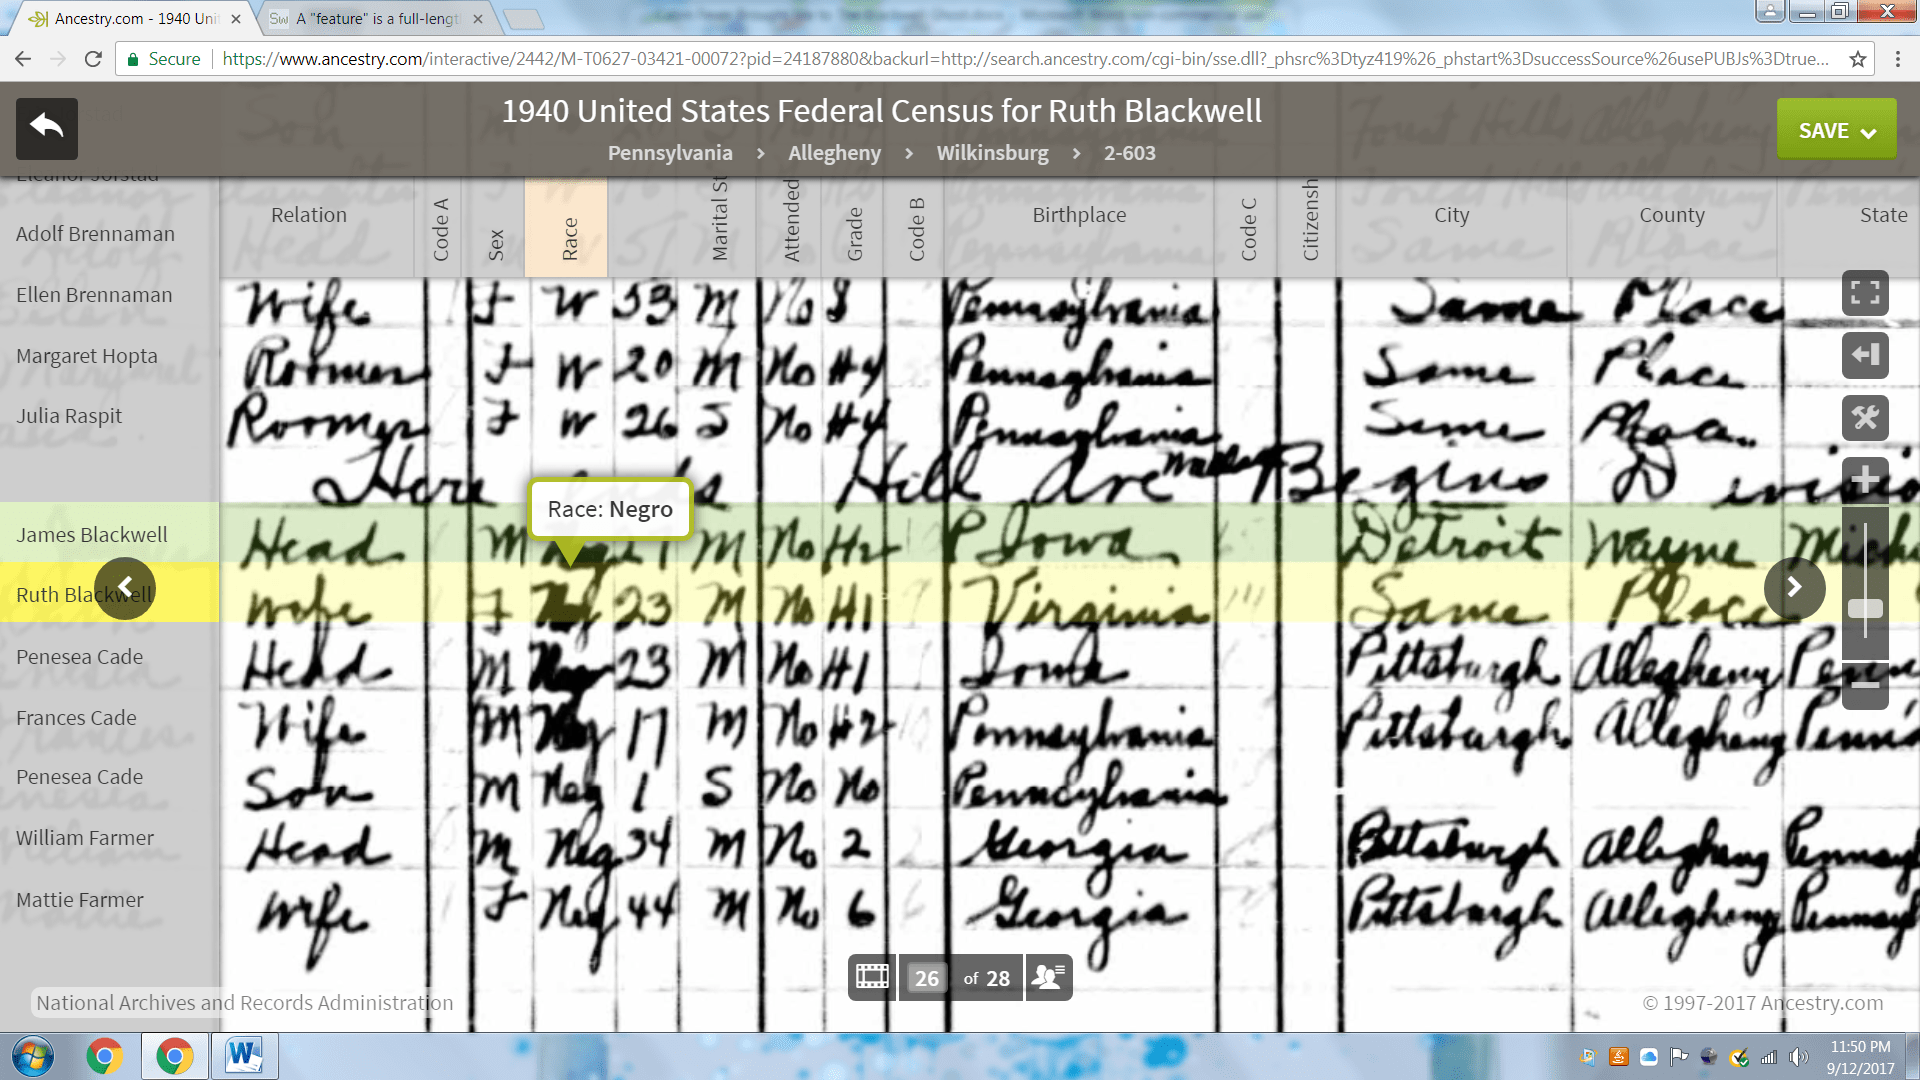 Ancestry.com - 1940 Unit
A "feature" is a full-lengt
Secure https://www.ancestry.com/interactive/2442/M-T0627-03421-00072?pid=24187880&backurl=http://search.ancestry.com/cgi-bin/sse.dll?_phsrc%3Dtyz419%26_phstart%3DsuccessSource%26usePUBJs%3Dtrue...
1940 United States Federal Census for Ruth Blackwell
SAVE
Pennsylvania > Allegheny > Wilkinsburg > 2-603
Eleanor Jorstad
Relation Code A Sex Race Marital St Attended Grade Code B Birthplace Code C Citizensh City County State
Adolf Brennaman
Ellen Brennaman Wife F W 53 M No 8 Pennsylvania Same Place
Margaret Hopta Roomer F W 20 M No H4 Pennsylvania Same Place
Julia Raspit Roomer F W 26 S No H4 Pennsylvania Same Place
Here Hill Begins
Race: Negro
James Blackwell Head M M No H2 Iowa Detroit Wayne Michi
Ruth Blackwell Wife F 23 M No H1 Virginia Same Place
Penesea Cade Head M Neg 23 M No H1 Iowa Pittsburgh Allegheny Penn
Frances Cade Wife M Neg 17 M No H2 Pennsylvania Pittsburgh Allegheny Penn
Penesea Cade Son M Neg 1 S No No Pennsylvania
William Farmer Head M Neg 34 M No 2 Georgia Pittsburgh Allegheny Pennsyl
Mattie Farmer Wife F Neg 44 M No 6 Georgia Pittsburgh Allegheny Pennsyl
26 of 28
National Archives and Records Administration
© 1997-2017 Ancestry.com
11:50 PM
9/12/2017